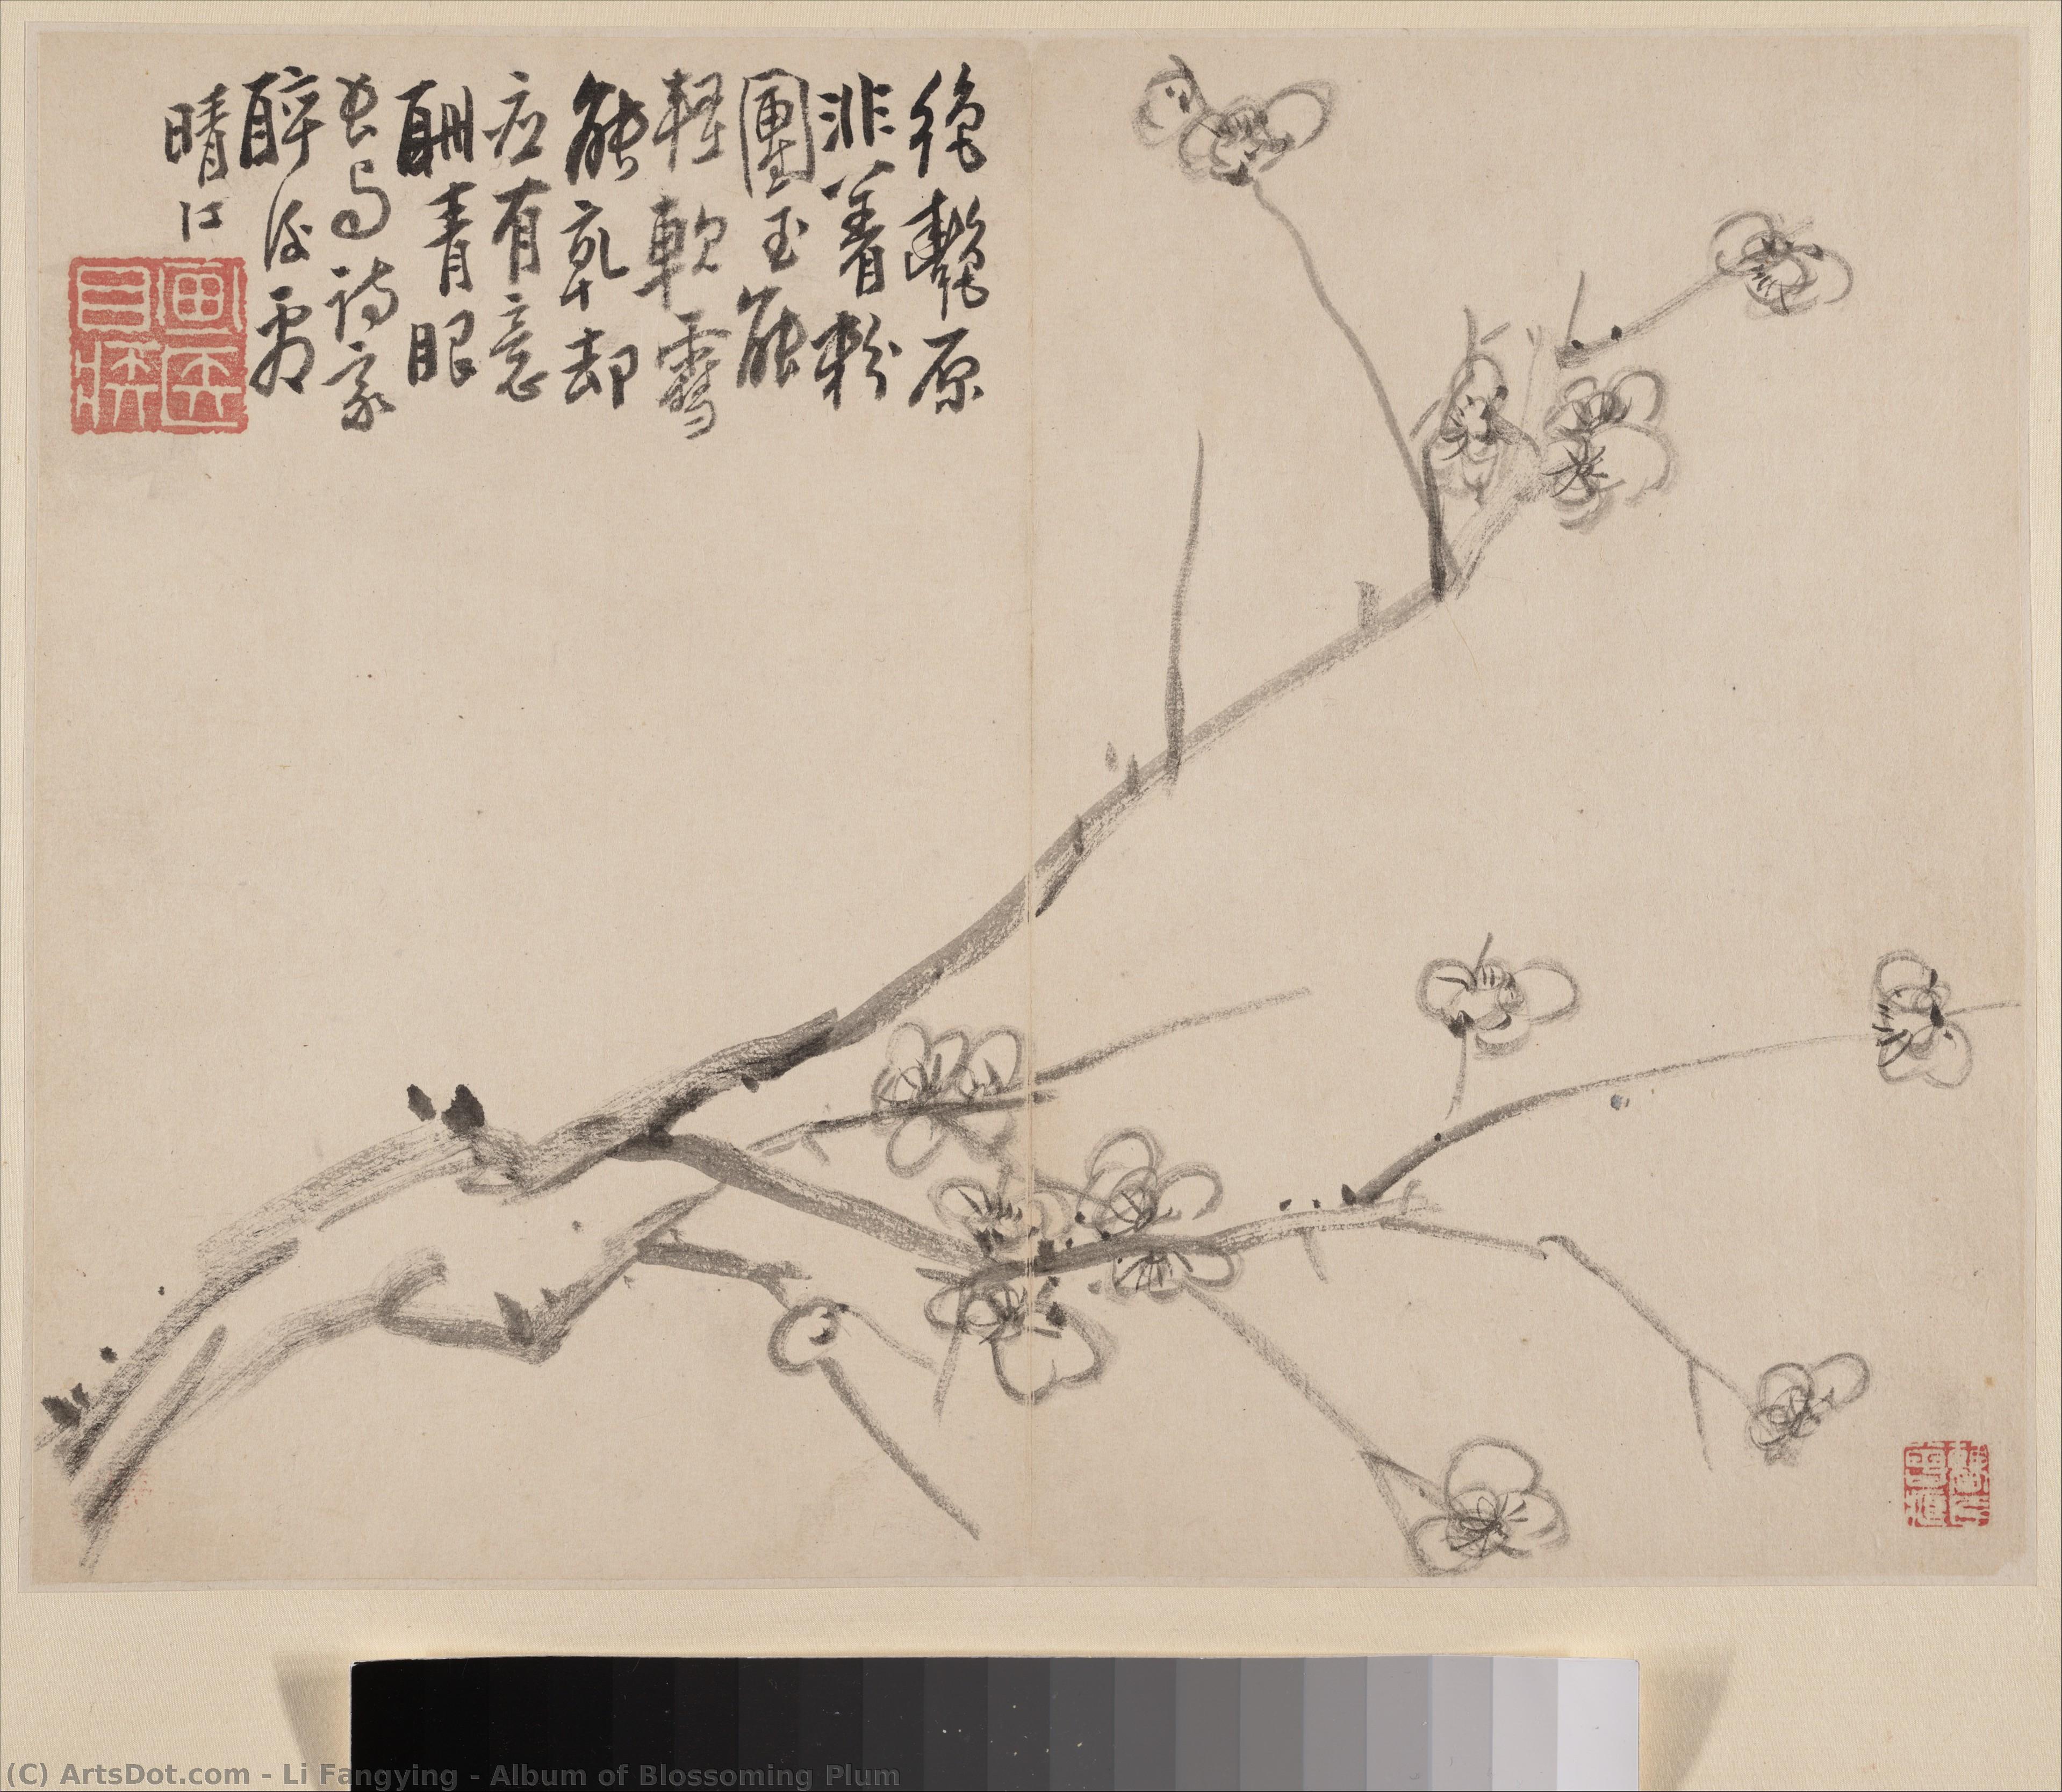 絶艷原
非着粉
團玉能
輕軟雪
能乾却
應有意
酬青眼
長与詩家
醉後看
晴江
(C) ArtsDot.com - Li Fangying - Album of Blossoming Plum